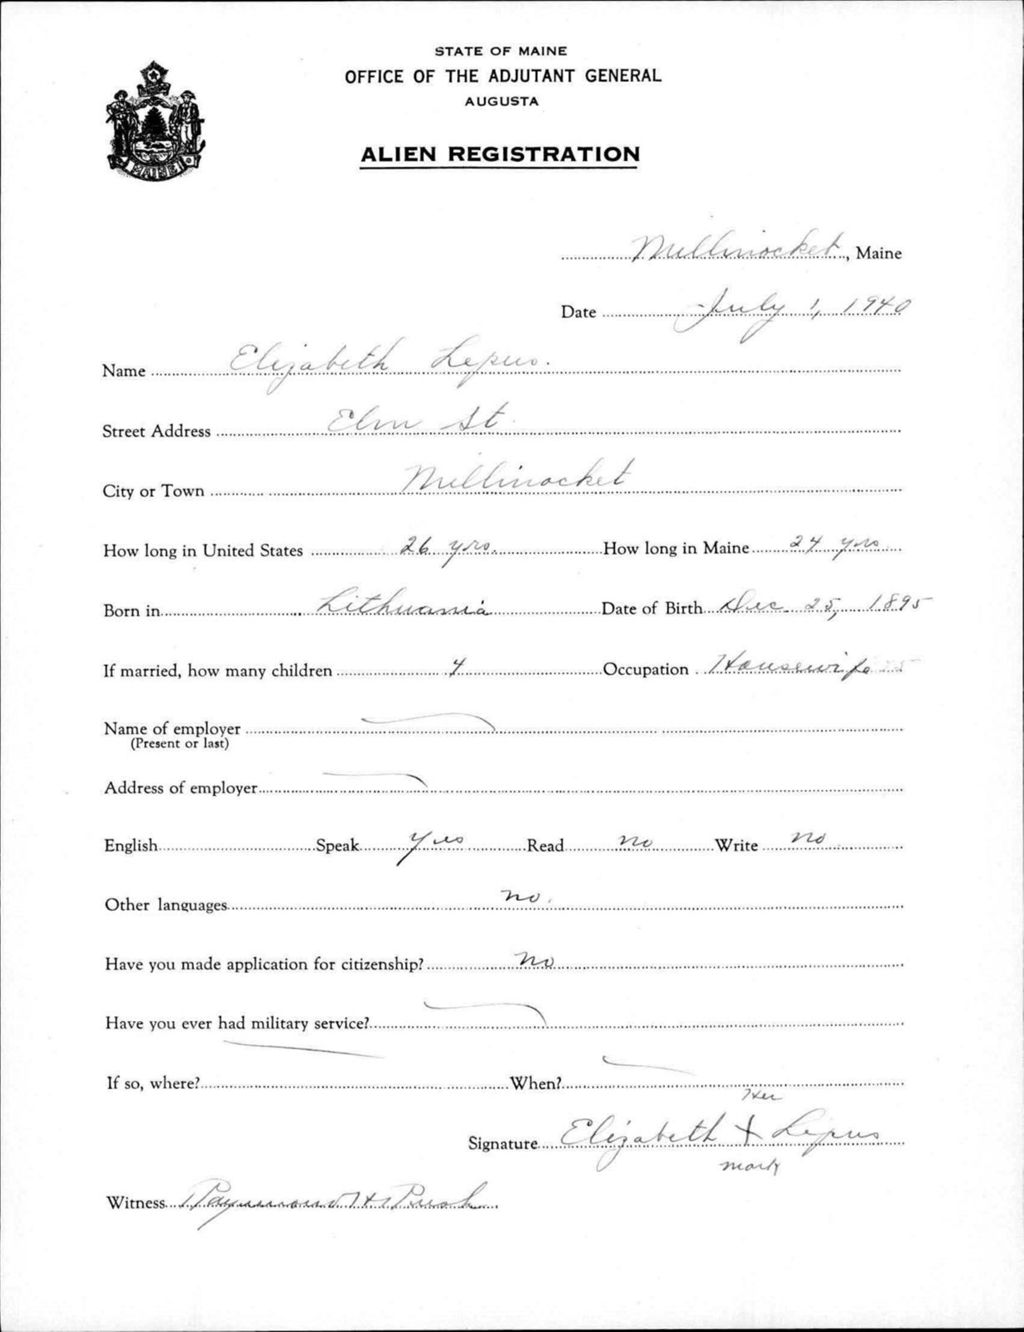 STATE OF MAINE
OFFICE OF THE ADJUTANT GENERAL
AUGUSTA
ALIEN REGISTRATION
MAINE
Millinocket, Maine
Date July 1, 1940
Name Elizabeth Lepus.
Street Address Elm St.
City or Town Millinocket
How long in United States 26 yrs. How long in Maine 24 yrs
Born in Lithuania Date of Birth Dec. 25, 1895
If married, how many children 4 Occupation Housewife
Name of employer
(Present or last)
Address of employer
English Speak Yes Read No Write No
Other languages No.
Have you made application for citizenship? No
Have you ever had military service?
If so, where? When?
Her
Signature Elizabeth X Lepus
mark
Witness Raymond H.